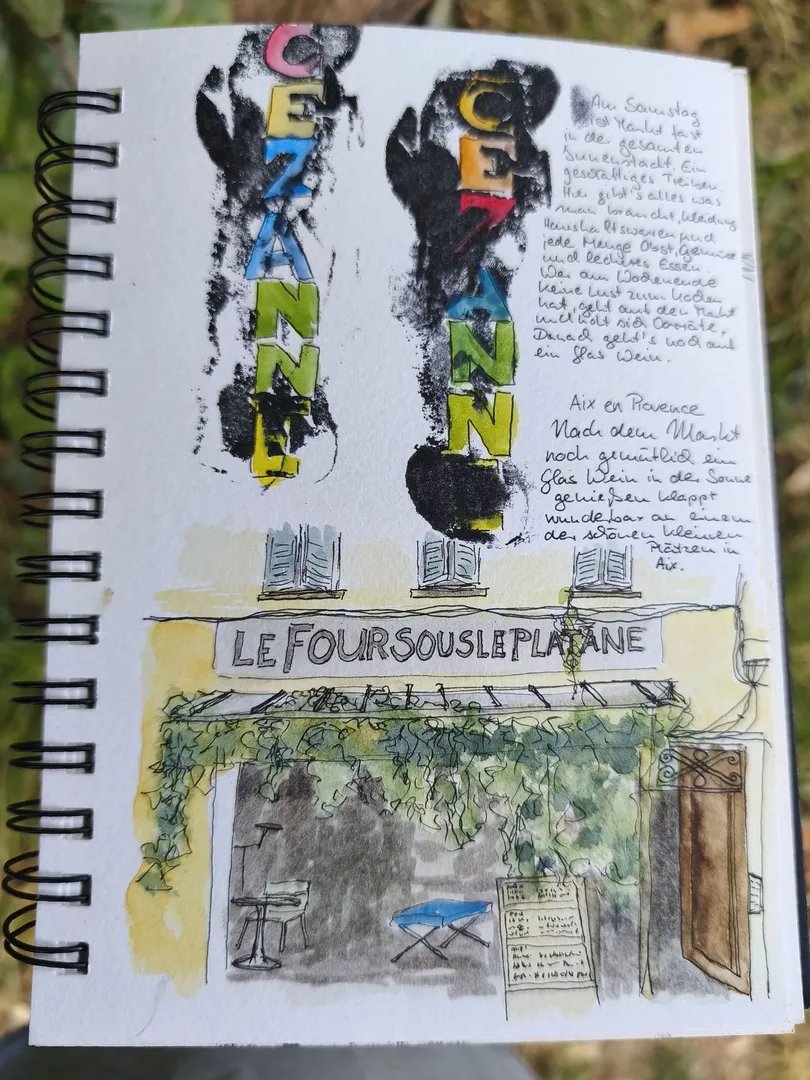 CEZANNE
CEZANNE
Am Samstag
ist Markt fast
in der gesamten
Innenstadt. Ein
geschäftiges Treiben.
Hier gibt's alles was
man braucht, Kleidung
Haushaltswaren und
jede Menge Obst, Gemüse
und leckeres Essen.
Wer am Wochenende
keine Lust zum Kochen
hat, geht auf den Markt
und holt sich Vorräte,
Danach geht's noch auf
ein Glas Wein.
Aix en Provence
Nach dem Markt
noch gemütlich ein
Glas Wein in der Sonne
genießen klappt
wunderbar an einem
der schönen kleinen
Plätzen in
Aix.
LE FOUR SOUS LE PLATANE